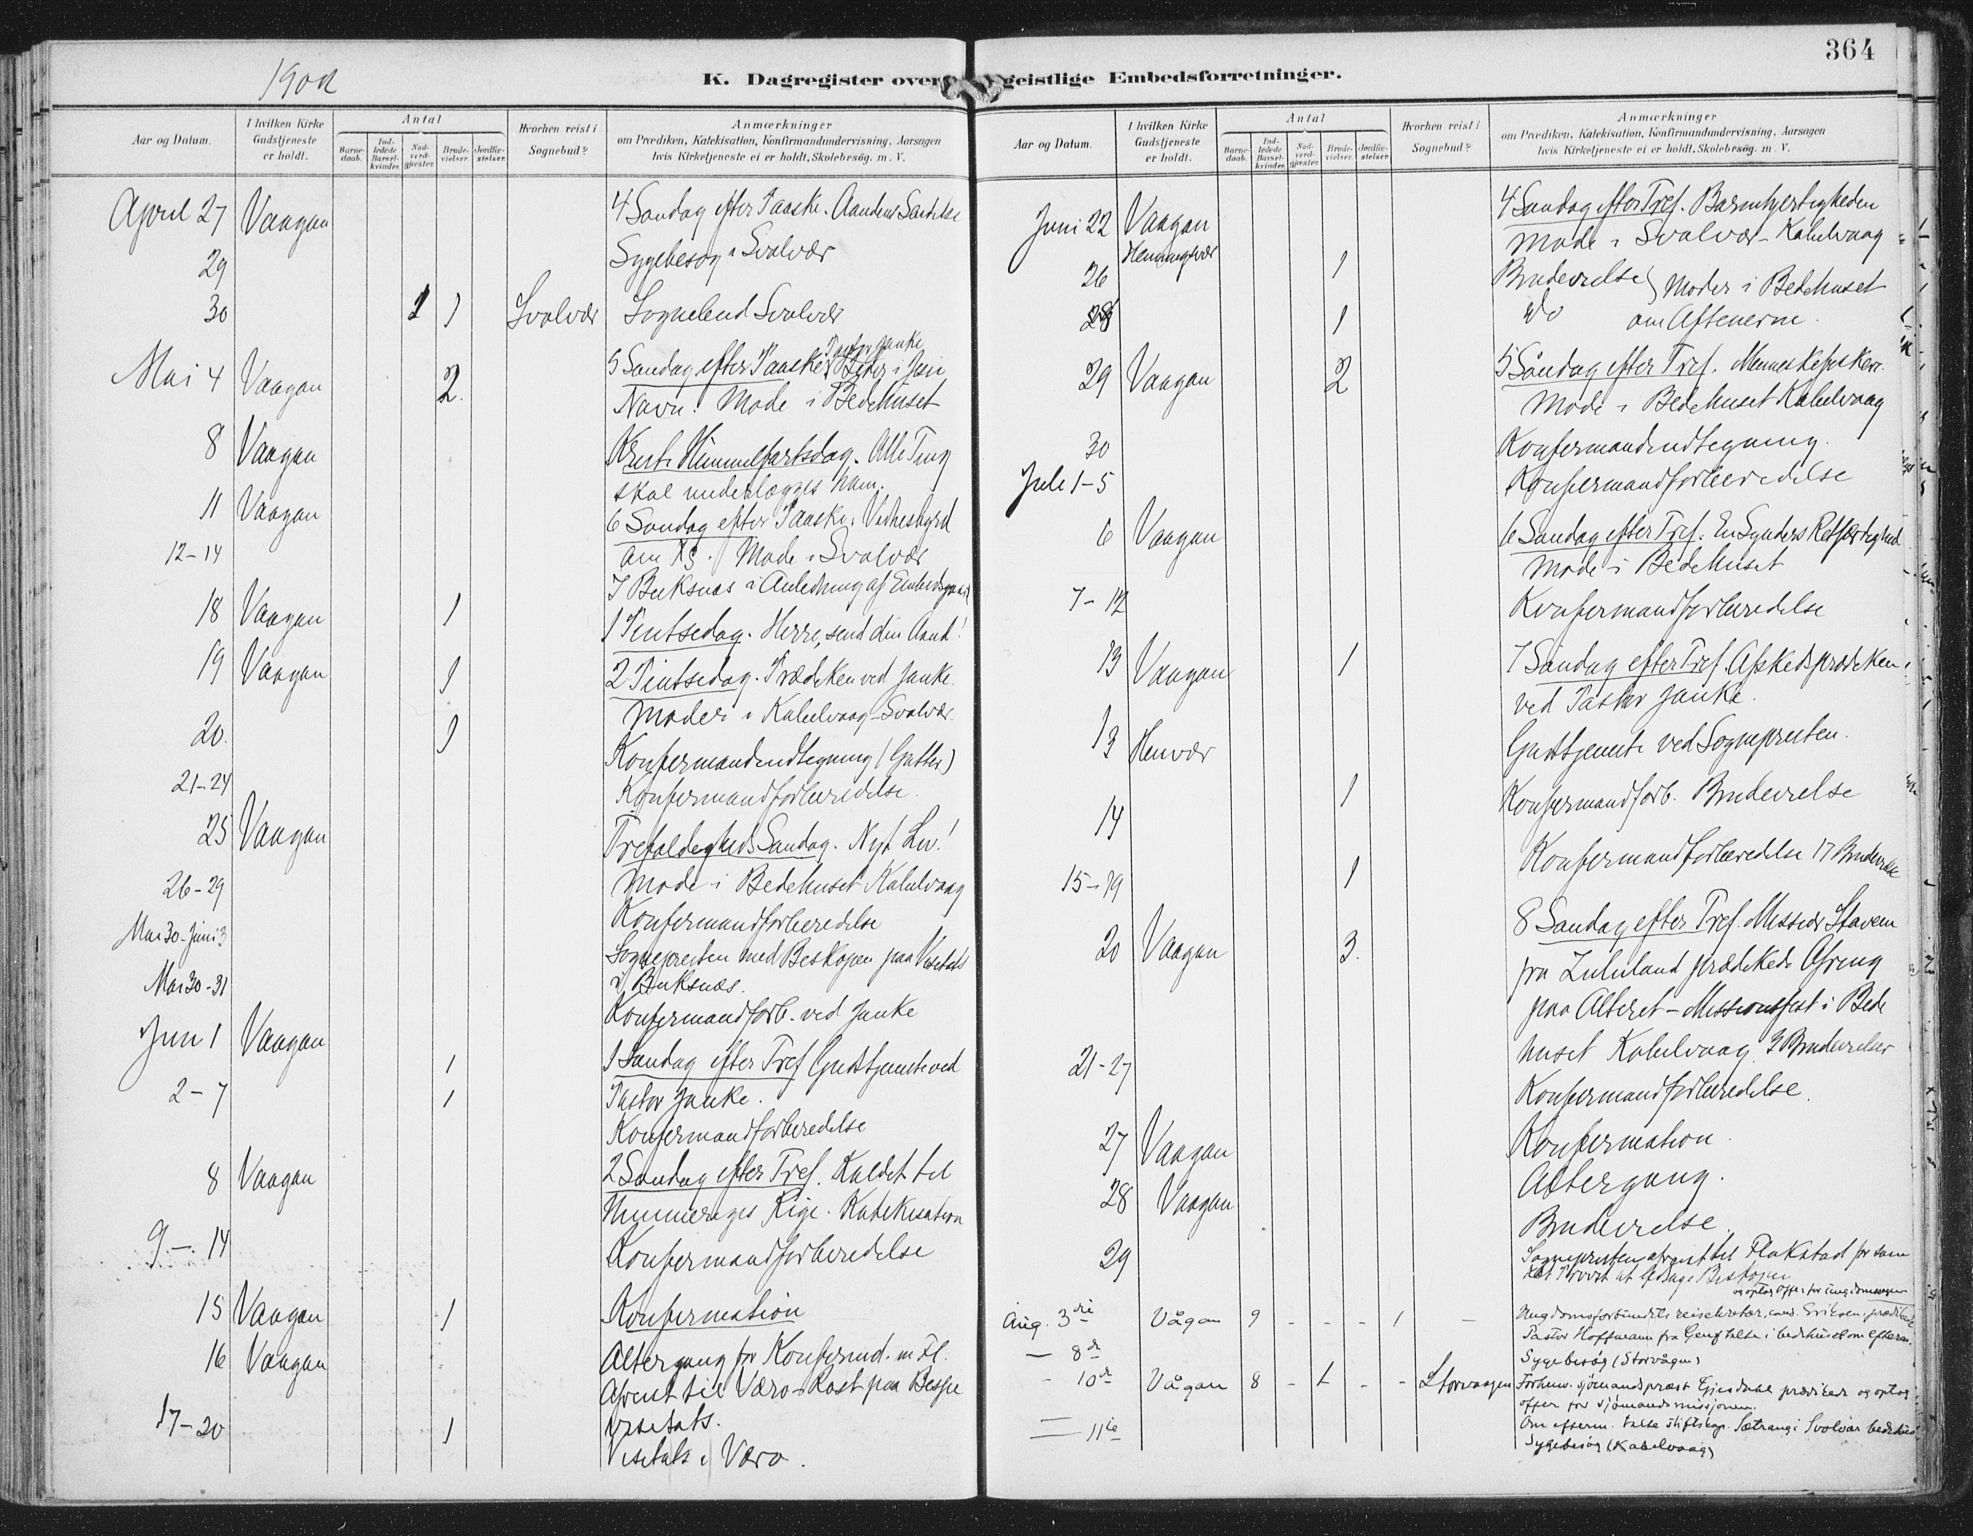 364
1902
K. Dagregister over geistlige Embedsforretninger.
Aar og Datum.
I hvilken Kirke Gudstjeneste er holdt.
Antal
Barnedaab.
Indledede Barselkvinder.
Nadverdgjester.
Brudevielser.
Jordfæstelser.
Hvorhen reist i Sognebud?
Anmærkninger
om Prædiken, Katekisation, Konfirmandundervisning, Aarsagen
hvis Kirketjeneste ei er holdt, Skolebesøg. m. V.
April 27 Vaagan 4 Søndag efter Paaske. Aandens Sendelse
29 Sygebesøg i Svolvær
30 1 1 Svolvær Sognebud Svolvær
Mai 4 Vaagan 2. 5 Søndag efter Paaske. Pastor Janke Beder i Jesu
Navn! Møde i Bedehuset
8 Vaagan Kristi Himmelfartsdag. Alle Ting
skal underlægges ham.
11 Vaagan 6 Søndag efter Paaske. Vidnesbyrd
om Xs. Møde i Svolvær
12-14 I Buksnæs i Anledning af
18 Vaagan 1 1 Pintsedag. Herre, send din Aand!
19 Vaagan 1 2 Pintsedag. Prædiken ved Janke.
Møder i Kabelvaag - Svolvær.
20. 1 Konfirmandindtegning (Gutter)
21-24 Konfirmandforberedelse.
25 Vaagan Trefoldigheds Søndag. Nyt Liv!
Møde i Bedehuset Kabelvaag
26-29 Konfirmandforberedelse
Mai 30 - Juni 3 Sognepresten med Biskopen paa Visitats
i Buksnæs.
Mai 30-31 Konfirmandforb. ved Janke
Juni 1 Vaagan 1 1 Søndag efter Tref. Gudstjeneste ved
Pastor Janke.
2-7 1 Konfirmandforberedelse
8 Vaagan 2 Søndag efter Tref. Kaldet til
Himmeriges Rige. Katekisation
9-14 Konfirmandforberedelse
15 Vaagan 1 Konfirmation
16 Vaagan Altergang for Konfirmd. m Fl.
Afreist til Værø - Røst paa Bispe
visitats.
17-20 1 Visitats i Værø.
Aar og Datum.
I hvilken Kirke Gudstjeneste er holdt.
Antal
Barnedaab.
Indledede Barselkvinder.
Nadverdgjester.
Brudevielser.
Jordfæstelser.
Hvorhen reist i Sognebud?
Anmærkninger
om Prædiken, Katekisation, Konfirmandundervisning, Aarsagen
hvis Kirketjeneste ei er holdt, Skolebesøg. m. V.
Juni 22 Vaagan 4 Søndag efter Tref. Barmhjertigheden
Henningsvær Møde i Svolvær - Kabelvaag
26 1 Brudevielse } Møder i Bedehuset
28 1 do om Aftenerne.
29 Vaagan 2 5 Søndag efter Tref. Menneskefisker.
Møde i Bedehuset Kabelvaag
30 Konfirmandindtegning.
Juli 1-5 Konfirmandforberedelse
6 Vaagan 6 Søndag efter Tref. En Synders Retfærdighed
Møde i Bedehuset
7-12 Konfirmandforberedelse
13 Vaagan 1 7 Søndag efter Tref. Afskedsprædiken
ved Pastor Janke.
13 Henvær Gudstjeneste ved Sognepresten.
14 1 Konfirmandforb. Brudevielse
15-19 1 Konfirmandforberedelse 17 Brudevielse
20 Vaagan 3. 8 Søndag efter Tref. Missionær Stavem
fra Zululand prædikede Ofring
paa Alteret - Missionsfest i Bede
huset Kabelvaag 3 Brudevielser
21-27 Konfirmandforberedelse.
27 Vaagan Konfirmation.
28 Vaagan Altergang.
Brudevielse.
29 Sognepresten afreist til Flakstad for som
Provst at ledsage Biskopen
og optog offer for ungdomssagen
Aug. 3die Vågan 9 - - - 1 - Ungdomsforbundets reisesekretær, cand. Eriksen, prædikede
Pastor Hoffmann fra Genf talte i bedehuset om efterm.
- 8de Sygebesøg (Storvågen)
- 10de Vågan 8 - 1 - - Storvaagen Forhenv. sjømandsprest Gjesdahl prædikede og optog
offer for sjømandsmissjonen.
Om efterm. talte stiftskap. Sætrang i Svolvær bedehus
- 11te Sygebesøg (Kabelvaag)